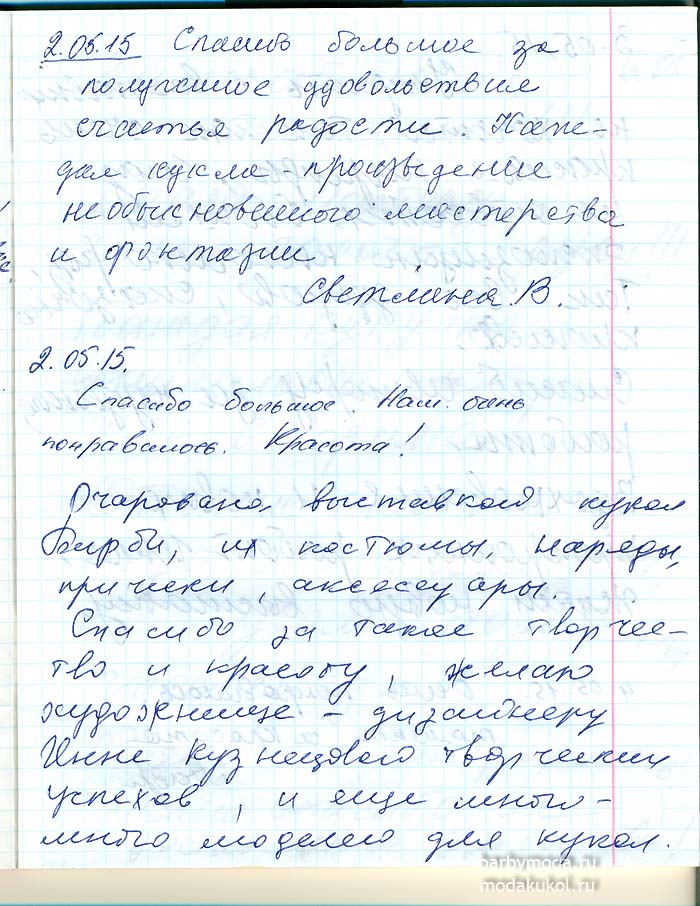 2.05.15 Спасибо большое за
полученное удовольствие
счастья радости. Каж-
дая кукла - произведение
необыкновенного мастерства
и фонтазии
Светлана В.
2.05.15.
Спасибо большое. Нам очень
понравилось. Красота!
Очарована выставкой кукол
Барби, их костюмы, наряды,
прически, аксессуары.
Спасибо за такое творчес-
тво и красоту, желаю
художнице - дизайнеру
Инне Кузнецовой творческих
успехов, и еще много-
много моделей для кукол.
barbymoda.ru
modakukol.ru